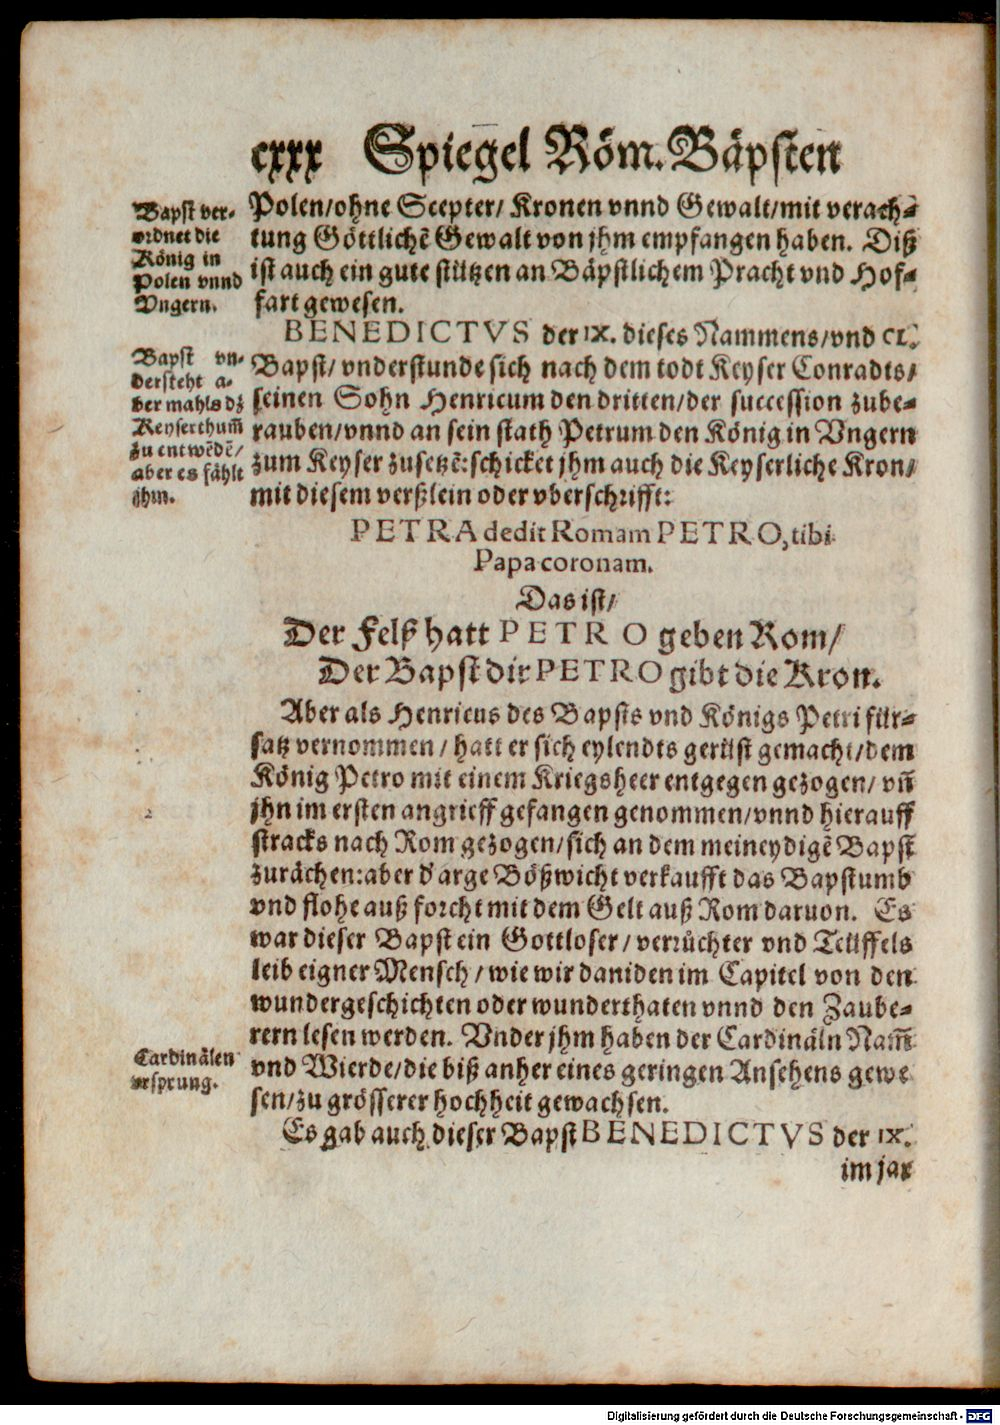 cxxx Spiegel Röm. Bäpsten
Bapst ver-
ordnet die
König in
Polen vnnd
Vngern.
Polen/ohne Scepter/ Kronen vnnd Gewalt/mit verach-
tung Göttlichẽ Gewalt von jhm empfangen haben. Diß
ist auch ein gute stützen an Bäpstlichem Pracht vnd Hof-
fart gewesen.
BENEDICTVS der IX. dieses Nammens/vnd CL.
Bapst vn-
dersteht a-
ber mahls dz
Keyserthum̃
zu entwẽdẽ/
aber es fählt
jhm.
Bapst/ vnderstunde sich nach dem todt Keyser Conradts/
seinen Sohn Henricum den dritten/der succession zube-
rauben/vnnd an sein stath Petrum den König in Vngern
zum Keyser zusetzẽ: schicket jhm auch die Keyserliche Kron/
mit diesem verßlein oder vberschrifft:
PETRA dedit Romam PETRO, tibi
Papa coronam.
Das ist/
Der Felß hatt PETRO geben Rom/
Der Bapst dir PETRO gibt die Kron.
Aber als Henricus des Bapsts vnd Königs Petri für-
satz vernommen/ hatt er sich eylendts gerüst gemacht/dem
König Petro mit einem Kriegsheer entgegen gezogen/ vñ
jhn im ersten angrieff gefangen genommen/vnnd hierauff
stracks nach Rom gezogen/sich an dem meineydigẽ Bapst
zurächen: aber d' arge Bößwicht verkaufft das Bapstumb
vnd flohe auß forcht mit dem Gelt auß Rom daruon. Es
war dieser Bapst ein Gottloser/ verrüchter vnd Teüffels
leib eigner Mensch/ wie wir daniden im Capitel von den
wundergeschichten oder wunderthaten vnnd den Zaube-
rern lesen werden. Vnder jhm haben der Cardinäln Nam̃
Cardinälen
vrsprung.
vnd Wierde/die biß anher eines geringen Ansehens gewe
sen/zu grösserer hochheit gewachsen.
Es gab auch dieser Bapst BENEDICTVS der IX.
im jar
Digitalisierung gefördert durch die Deutsche Forschungsgemeinschaft - DFG